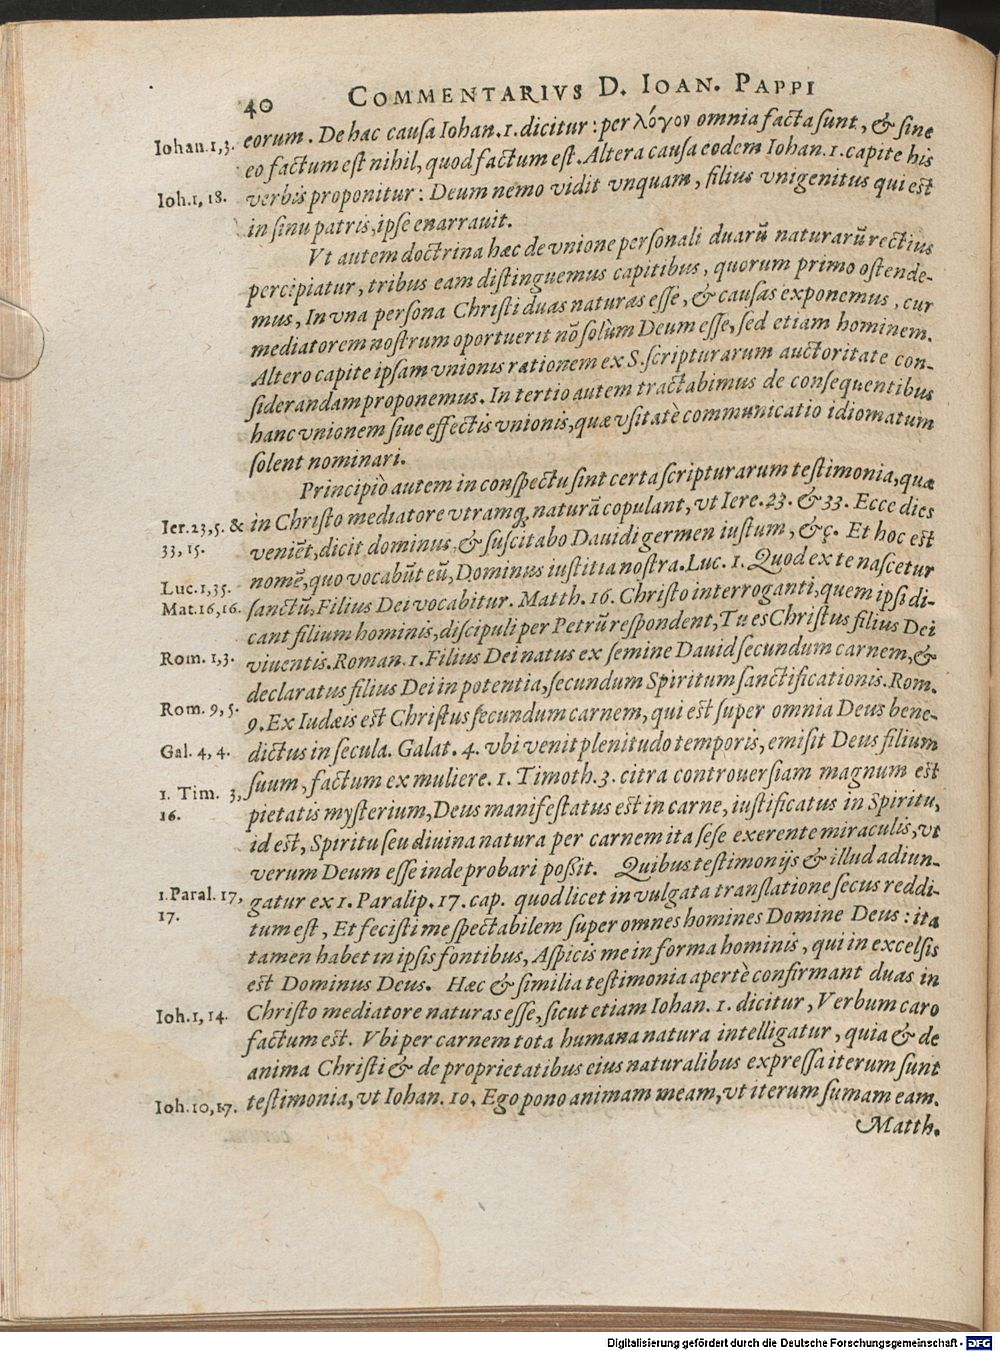 40 COMMENTARIVS D. IOAN. PAPPI
Iohan.1,3. eorum. De hac causa Iohan.1. dicitur: per λόγον omnia facta sunt, & sine
eo factum est nihil, quod factum est. Altera causa eodem Iohan.1. capite his
Ioh.1, 18. verbis proponitur: Deum nemo vidit vnquam, filius vnigenitus qui est
in sinu patris, ipse enarrauit.
Vt autem doctrina hæc de vnione personali duarũ naturarũ rectius
percipiatur, tribus eam distinguemus capitibus, quorum primo ostende-
mus, In vna persona Christi duas naturas esse, & causas exponemus, cur
mediatorem nostrum oportuerit nõ solùm Deum esse, sed etiam hominem.
Altero capite ipsam vnionis rationem ex S. scripturarum auctoritate con-
siderandam proponemus. In tertio autem tractabimus de consequentibus
hanc vnionem siue effectis vnionis, quæ vsitatè communicatio idiomatum
solent nominari.
Principiò autem in conspectu sint certa scripturarum testimonia, quæ
Ier.23,5. & in Christo mediatore vtramq; naturã copulant, vt Iere.23. & 33. Ecce dies
33, 15. veniẽt, dicit dominus, & suscitabo Dauidi germen iustum, &c. Et hoc est
nomẽ, quo vocabũt eũ, Dominus iustitia nostra. Luc. 1. Quod ex te nascetur
Luc.1,35.
Mat.16,16. sanctũ, Filius Dei vocabitur. Matth. 16. Christo interroganti, quem ipsi di-
cant filium hominis, discipuli per Petrũ respondent, Tu es Christus filius Dei
Rom. 1,3. viuentis. Roman. 1. Filius Dei natus ex semine Dauid secundum carnem, &
declaratus filius Dei in potentia, secundum Spiritum sanctificationis. Rom.
Rom. 9, 5. 9. Ex Iudæis est Christus secundum carnem, qui est super omnia Deus bene-
Gal. 4, 4. dictus in secula. Galat. 4. vbi venit plenitudo temporis, emisit Deus filium
suum, factum ex muliere. 1. Timoth. 3. citra controuersiam magnum est
1. Tim. 3, pietatis mysterium, Deus manifestatus est in carne, iustificatus in Spiritu,
16. id est, Spiritu seu diuina natura per carnem ita sese exerente miraculis, vt
verum Deum esse inde probari possit. Quibus testimonijs & illud adiun-
1.Paral. 17, gatur ex 1. Paralip. 17. cap. quod licet in vulgata translatione secus reddi-
17. tum est, Et fecisti me spectabilem super omnes homines Domine Deus: ita
tamen habet in ipsis fontibus, Aspicis me in forma hominis, qui in excelsis
est Dominus Deus. Hæc & similia testimonia apertè confirmant duas in
Ioh.1, 14. Christo mediatore naturas esse, sicut etiam Iohan. 1. dicitur, Verbum caro
factum est. Vbi per carnem tota humana natura intelligatur, quia & de
anima Christi & de proprietatibus eius naturalibus expressa iterum sunt
Ioh.10,17. testimonia, vt Iohan. 10. Ego pono animam meam, vt iterum sumam eam.
Matth.
Digitalisierung gefördert durch die Deutsche Forschungsgemeinschaft - DFG